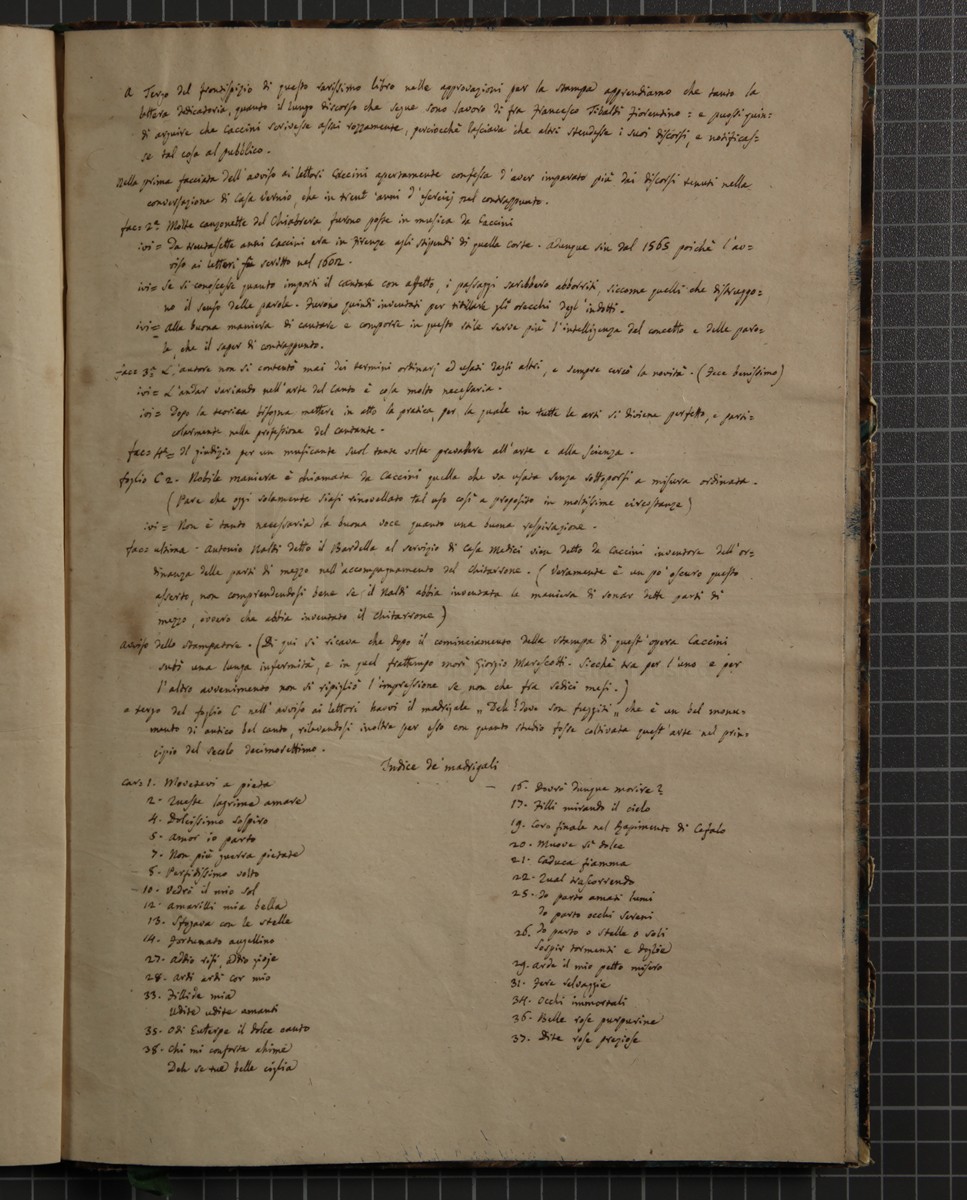 A Tergo del frontispizio di questo rarissimo libro nelle approvazioni per la stampa apprendiamo che tanto la
lettera dedicatoria, quanto il lungo discorso che segue sono lavoro di fra Francesco Tibaldi Fiorentino = e puossi quin=
di arguire che Caccini scrivesse assai rozzamente, perciocchè lasciava che altri stendesse i suoi discorsi, e notificas=
se tal cosa al pubblico.
Nella prima facciata dell'avviso ai lettori Caccini apertamente confessa d'aver imparato più dai discorsi tenuti nella
conversazione di Casa Vernio, che in trent'anni d'esercizj sul contrappunto.
fac= 2.a Molte canzonette del Chiabrera furono poste in musica da Caccini
ivi = da trentasette anni Caccini era in Firenze agli stipendj di quella Corte. Adunque sin dal 1565 poichè l'av=
viso ai lettori fu scritto nel 1602.
ivi= Se si conoscesse quanto importi il cantare con affetto, i passaggi sarebbero abborriti, siccome quelli che distruggo=
no il senso delle parole. Furono quindi inventati per titillare gli orecchi degl'indotti.
ivi= Alla buona maniera di cantare e comporre in questo stile serve più l'intelligenza del concetto e delle paro=
le, che il saper di contrappunto.
fac= 3.a L'autore non si contentò mai dei termini ordinarj ed usati dagli altri, e sempre cercò la novità. (Fece benissimo)
ivi= L'andar variando nell'arte del Canto è cosa molto necessaria.
ivi= Dopo la teorica bisogna mettere in atto la pratica, per la quale in tutte le arti si diviene perfetto, e parti=
colarmente nella professione del cantante.
fac= 4.a Il giudizio per un musicante suol tante volte prevalere all'arte e alla scienza.
foglio C 2. Nobile maniera è chiamata da Caccini quella che va usata senza sottoporsi a misura ordinata.
(Pare che oggi solamente siasi rinovellato tal uso così a proposito in moltissime circostanze)
ivi = Non è tanto necessaria la buona voce quanto una buona respirazione.
fac= ultima. Antonio Naldi detto il Bardella al servizio di Casa Medici vien detto da Caccini inventore dell'or=
dinanza delle parti di mezzo nell'accompagnamento del Chitarrone. (Veramente è un po' oscuro questo
asserto, non comprendendosi bene se il Naldi abbia inventata la maniera di sonar dette parti di
mezzo, ovvero che abbia inventato il Chitarrone)
Avviso dello Stampatore. (Di qui si ricava che dopo il cominciamento della stampa di quest'opera Caccini
subì una lunga infermità, e in quel frattempo morì Giorgio Marescotti. Sicchè tra per l'uno e per
l'altro avvenimento non si ripigliò l'impressione se non che fra sedici mesi.)
a tergo del foglio C nell'avviso ai lettori havvi il madrigale „ Deh! Dove son fuggiti „ che è un bel monu=
mento di antico bel canto, rilevandosi inoltre per esso con quanto studio fosse coltivata quest'arte nel prin=
cipio del secolo decimosettimo.
Indice de' madrigali
car= 1. Movetevi a pietà
2. Queste lagrime amare
4. Dolcissimo sospiro
5. Amor io parto
7. Non più guerra pietate
8. Perfidissimo volto
10. Vedrò il mio sol
12. Amarilli mia bella
13. Sfogava con le stelle
14. Fortunato augellino
27. Addio rifi, addio gioje
28. Ardi ardi cor mio
33. Fillide mia
Udite udite amanti
35. Odi Euterpe il dolce canto
38. Chi mi conforta ahimè
Deh se tue belle ciglia
16. Dovrò dunque morire?
17. Filli mirando il cielo
19. Coro finale nel Rapimento di Cefalo
20. Muove sì dolce
21. Caduca fiamma
22. Qual trascorrendo
25. Io parto amati lumi
Io parto occhi sereni
26. Io parto o stelle o soli
Sospir tormenti e doglie
29. Arde il mio petto misero
31. Fere selvaggie
34. Occhi immortali
36. Belle rose purpurine
37. Dite rose preziose